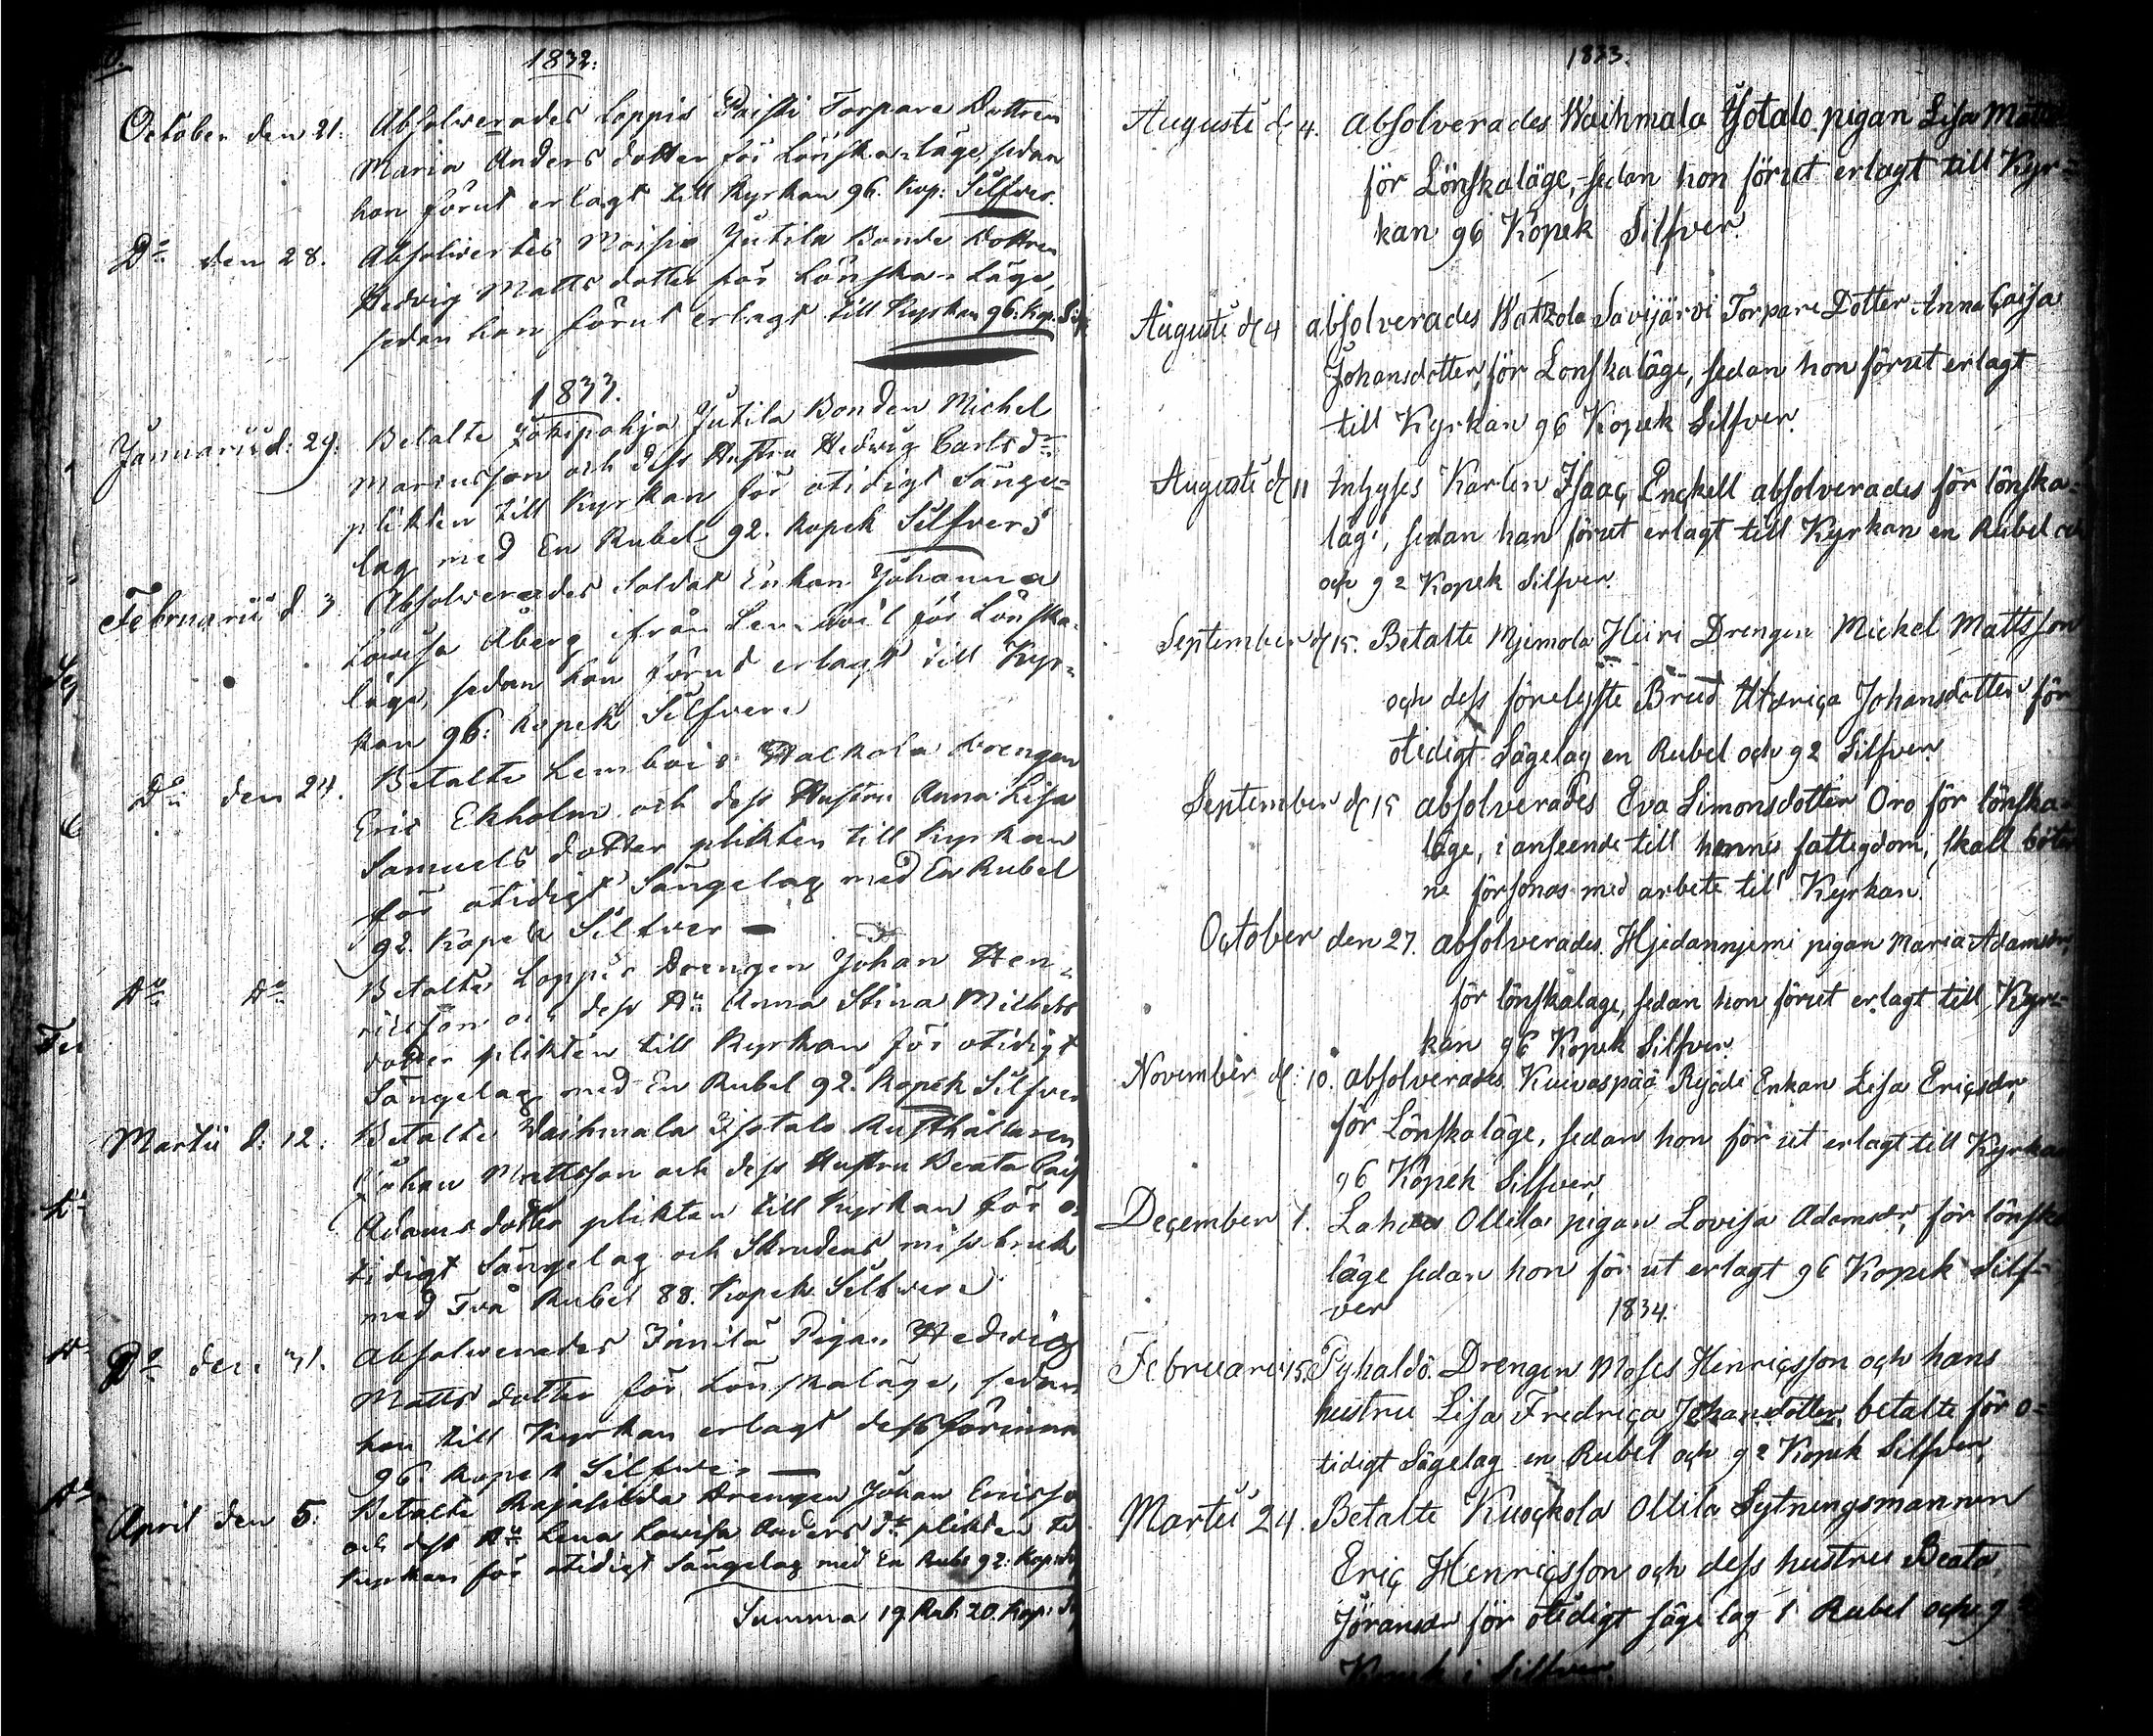 1832.
October den 21. Absolverades Loppis Paisti Torpare Dottren
Maria Anders dotter för Lönska-läge, sedan
hon förut erlagt till Kyrkan 96. Kop: Silfver.
Do den 28. Absolverdes Moisio Jutila Bonde Dottren
Hedvig Matts dotter för Lönska-Läge,
sedan hon förut erlagt till Kyrkan 96. Kop. Silf
1833.
Januarii d: 29. Betalte Jokipohja Jutila Bonden Michel
Mariusson och dess Hustru Hedwig Carls dr
plikten till Kyrkan för otidigt Sänge-
lag med En Rubel 92. Kopek Silfver
Februarii d 3 Absolverades Soldat Enkan Johanna
Lovisa Åberg ifrån för Lönska-
läge, sedan hon förut erlagt till Kyr-
kan 96: Kopek Silfver
Do den 24. Betalte Lembois Drengen
Eric Ekholm och dess Hustru Anna Lisa
Samuels dotter plikten till Kyrkan
för otidigt Sängelag med En Rubel
92. Kopek Silfver —
Do Do Betalte Loppis Drengen Johan Hen-
ricsson och dess Hu Anna Stina Michels
dotter plikten till Kyrkan för otidigt
Sängelag med En Rubel 92. Kopek Silfver
Martii d: 12. Betalte Waihmala Isotalo Rusthållaren
Johan Mattsson och dess Hustru Beata Caisa
Adamsdotter plikten till Kyrkan för o-
tidigt Sängelag och Skrudens missbruk
med Två Rubel 88. Kopek Silfver
Do den 31. Absolverades Innilä Pigan Hedwig
Matts dotter för Lönskaläge, sedan
hon till Kyrkan erlagt dessförinnan
96. Kopek Silfver —
April den 5. Betalte Drengen Johan Ericsson
och dess Hu Lena Lovisa Anders dr plikten till
Kyrkan för otidigt Sängelag med En Rubl 92. Kop. Silf
Summa 19. Rub. 20. Kop: Sil
1833.
Augusti d. 4. absolverades Waihmala Ysotalo pigan Lisa Matts
för Lönskaläge, sedan hon förut erlagt till Kyr-
kan 96 Kopek Silfver.
Augusti d. 4 absolverades Watzola Savijärvi Torpare Dotter Anna Caisa
Johansdotter, för Lonskaläge, sedan hon förut erlagt
till Kyrkan 96 Kopek Silfver.
Augusti d. 11 Inhyses Karlen Isaac Enckell absolverades för lönska-
läge, sedan han förut erlagt till Kyrkan en Rubel och
och 92 Kopek Silfver.
September d. 15. Betalte Mjemola Hiiri Drengen Mickel Mattsson
och dess förelyste Brud Ulrica Johansdotter för
otidigt Sägelag en Rubel och 92 Silfver.
September d. 15 absolverades Eva Simonsdotter Oro för lönska-
läge, i anseende till hennes fattigdom, skall böter
ne försonas med arbete till Kyrkan.
October den 27. absolverades Hjedannjemi pigan Maria Adamsdr,
för lönskaläge, sedan hon förut erlagt till Kyr-
kan 96 Kopek Silfver.
November d: 10. absolverades Kuivaspää Enkan Lisa Ericsdr,
för Lönskaläge, sedan hon för ut erlagt till Kyrkan
96 Kopek Silfver.
December 1. Ollila pigan Lovisa Adamsdr, för lönska
läge sedan hon för ut erlagt 96 Kopek Silf-
ver
1834.
Februari 15. Pyhaldo Drengen Moses Henricsson och hans
hustru Lisa Fredrica Johansdotter betalte för o-
tidigt Sägelag en Rubel och 92 Kopek Silfver,
Martii 24. Betalte Kuockola Ollila Sytningsmannen
Eric Henricsson och dess hustru Beata
Jöransdr för otidigt säge lag 1 Rubel och 9
Kopek i Silfver.